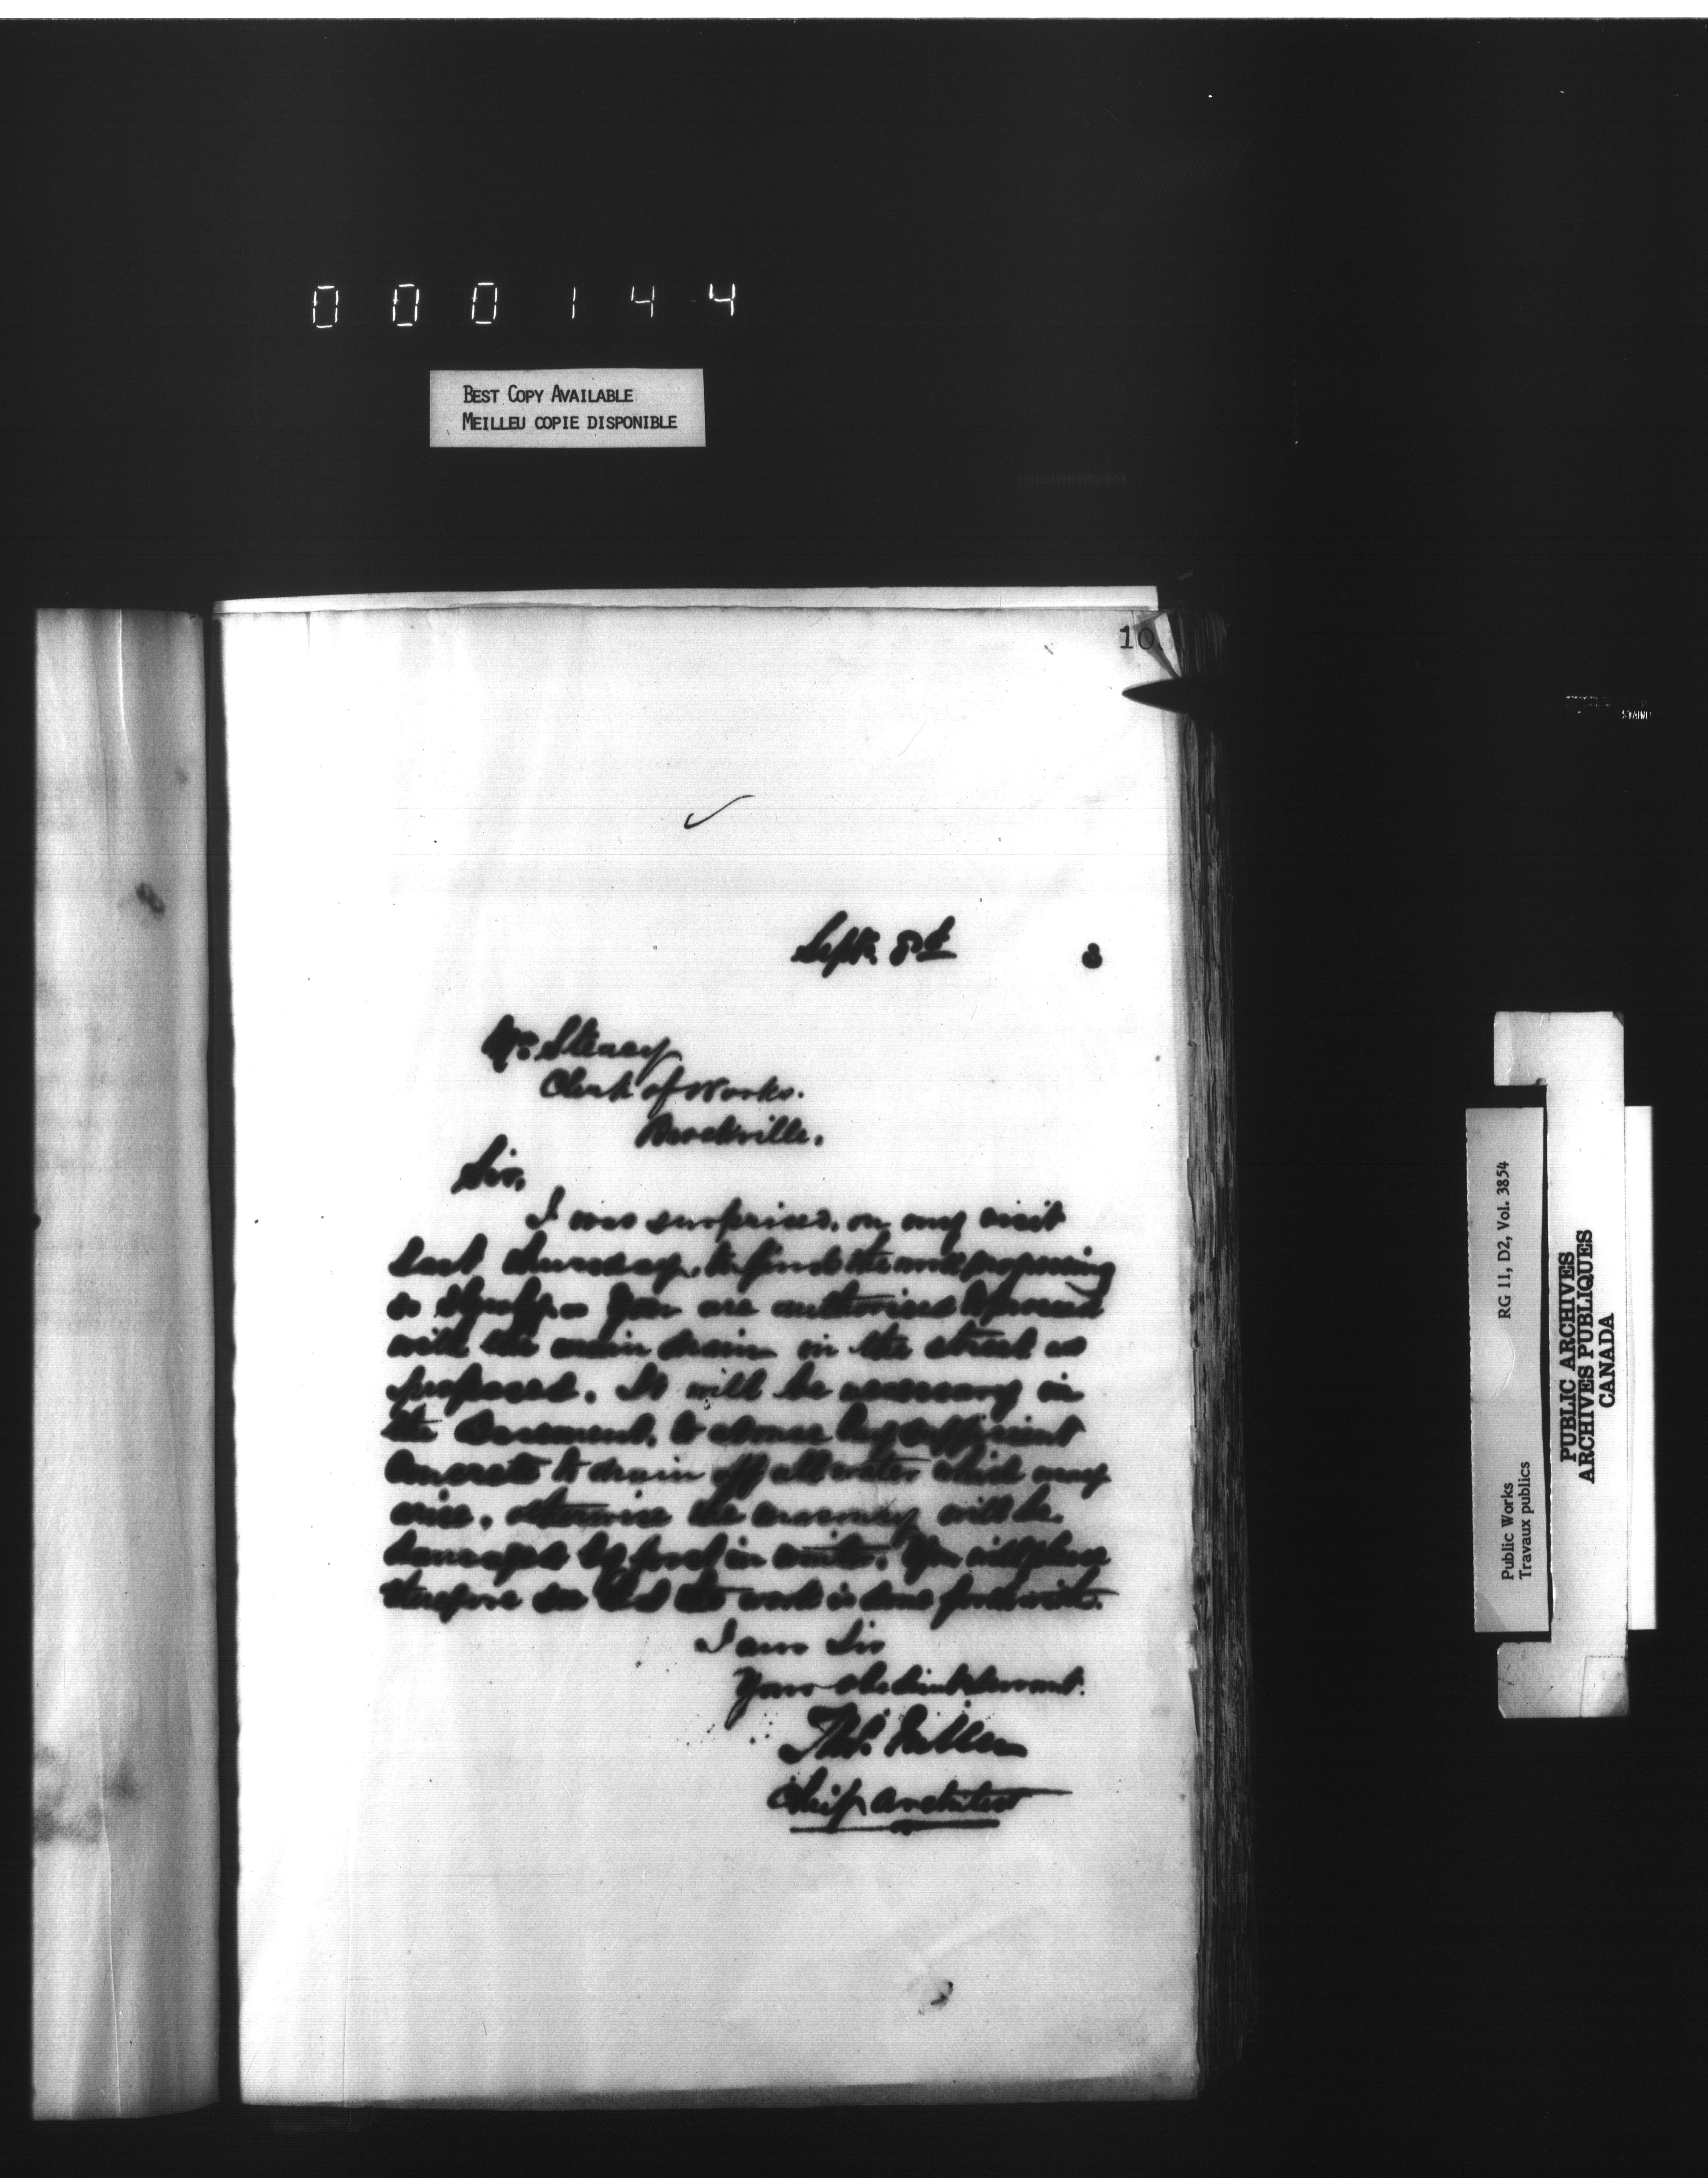 000144
BEST COPY AVAILABLE
MEILLEU COPIE DISPONIBLE
10
Sept. 8th 3
Mr. Steacy
Clerk of Works.
Brockville.
Sir,
I was surprised, on my visit
last Thursday, to find the work progressing
so slowly. You are authorised to proceed
with the main drain in the street as
proposed. It will be necessary in
the basement, to at once lay sufficient
concrete to drain off all water which may
arise, otherwise the masonry will be
damaged by frost in winter. You will please
therefore see that the work is done forthwith.
I am Sir
Your obedient servant.
Thos. Fuller
Chief Architect
RG 11, D2, Vol. 3854
Public Works
Travaux publics
PUBLIC ARCHIVES
ARCHIVES PUBLIQUES
CANADA